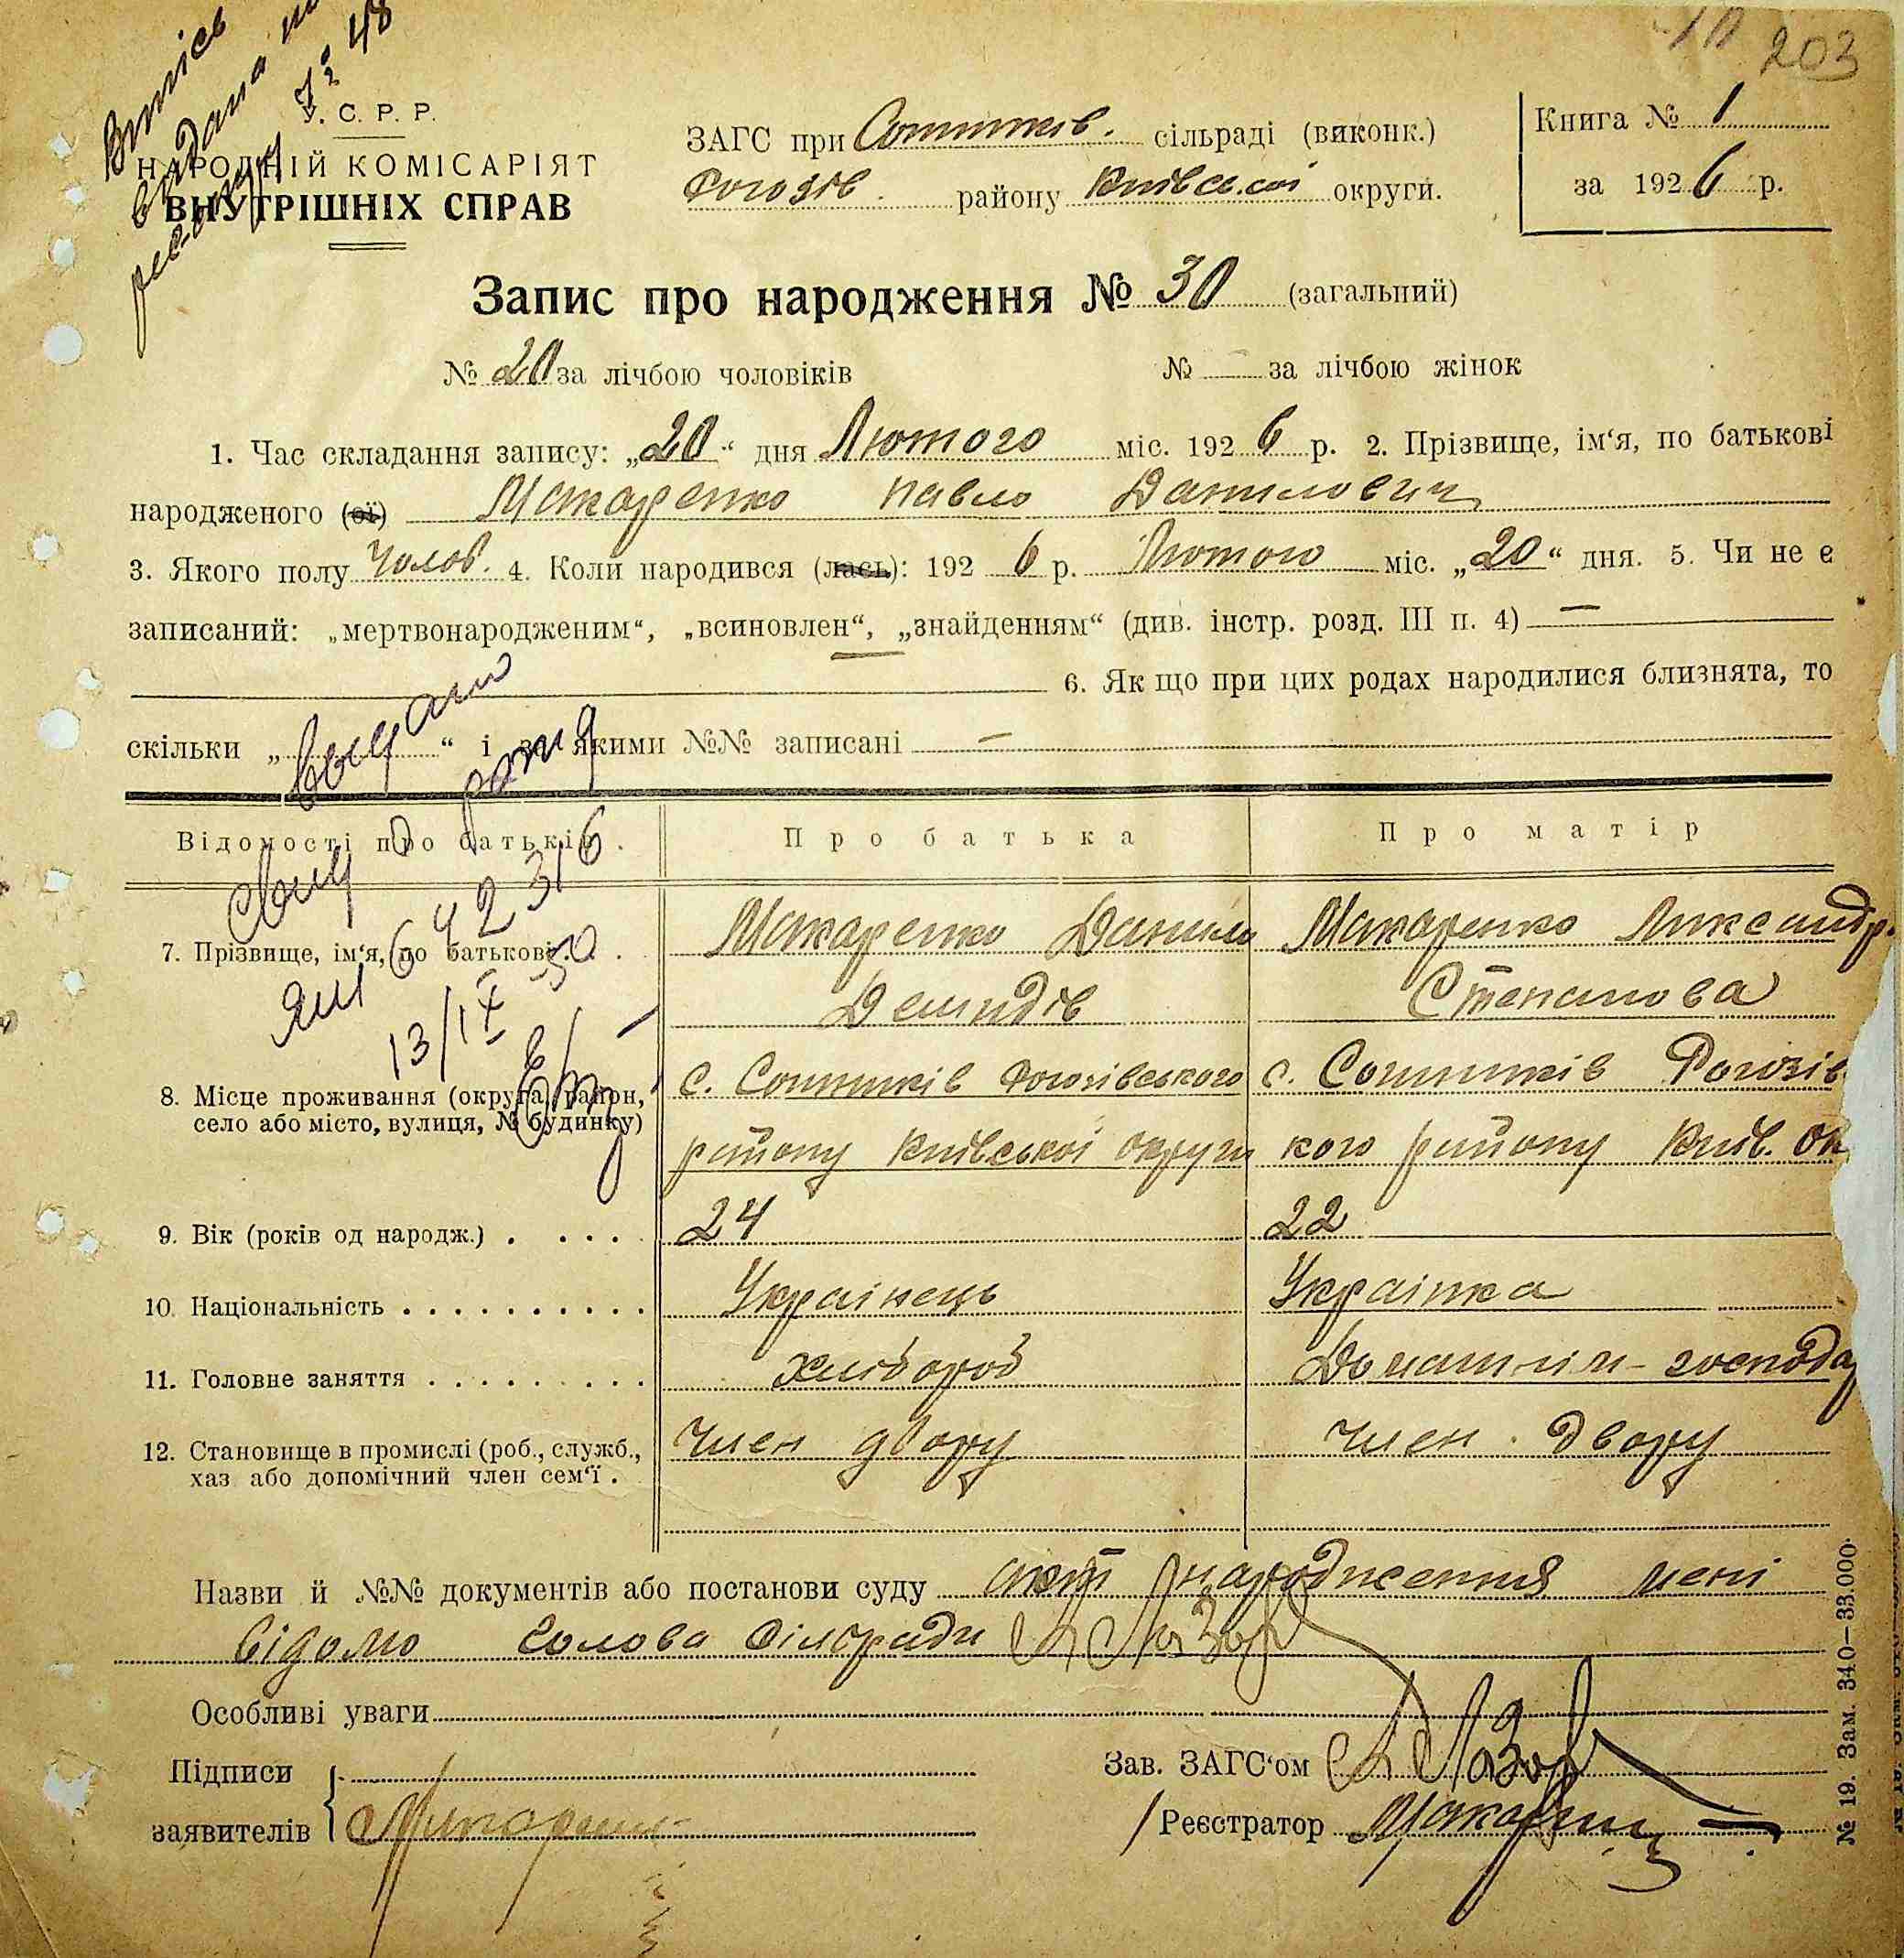 203
У. С. Р. Р.
НАРОДНІЙ КОМІСАРІЯТ
ВНУТРІШНІХ СПРАВ
ЗАГС при Сошників. сільраді (виконк.)
Рогозів. району Київської округи.
Книга № 1
за 1926 р.
Запис про народження № 30 (загальний)
№ 20 за лічбою чоловіків № — за лічбою жінок
1. Час складання запису: „20“ дня Лютого міс. 1926 р. 2. Прізвище, ім‘я, по батькові
народженого (ої) Макаренко Павло Данилович
3. Якого полу Чолов. 4. Коли народився (лась): 1926 р. Лютого міс. „20“ дня. 5. Чи не є
записаний: „мертвонародженим“, „всиновлен“, „знайденням“ (див. інстр. розд. III п. 4) —
6. Якщо при цих родах народилися близнята, то
скільки „ “ і за якими №№ записані —
Відомості про батьків. Про батька Про матір
7. Прізвище, ім‘я, по батькові . . . Макаренко Данило Макаренко Лександр.
Демидів Степанова
13/IX 50
8. Місце проживання (округа, район,
село або місто, вулиця, № будинку)
с. Сошників Рогозівського с. Сошників Рогозів
району Київської округи кого району Київ. Ок
9. Вік (років од народж.) . . . . 24 22
10. Національність . . . . . . . . . . Українець Українка
11. Головне заняття . . . . . . . . . Хлібороб Домашня-господар
12. Становище в промислі (роб., служб.,
хаз або допомічний член сем‘ї .
Член двору Член двору
Назви й №№ документів або постанови суду акт народження мені
Відомо Голова Сілсради
Особливі уваги
Підписи
заявителів
Зав. ЗАГС‘ом
Реєстратор
№ 19. Зам. 340—33.000